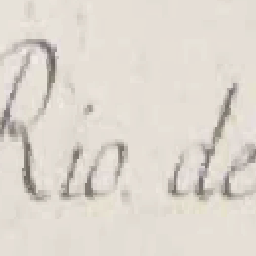 Rio de